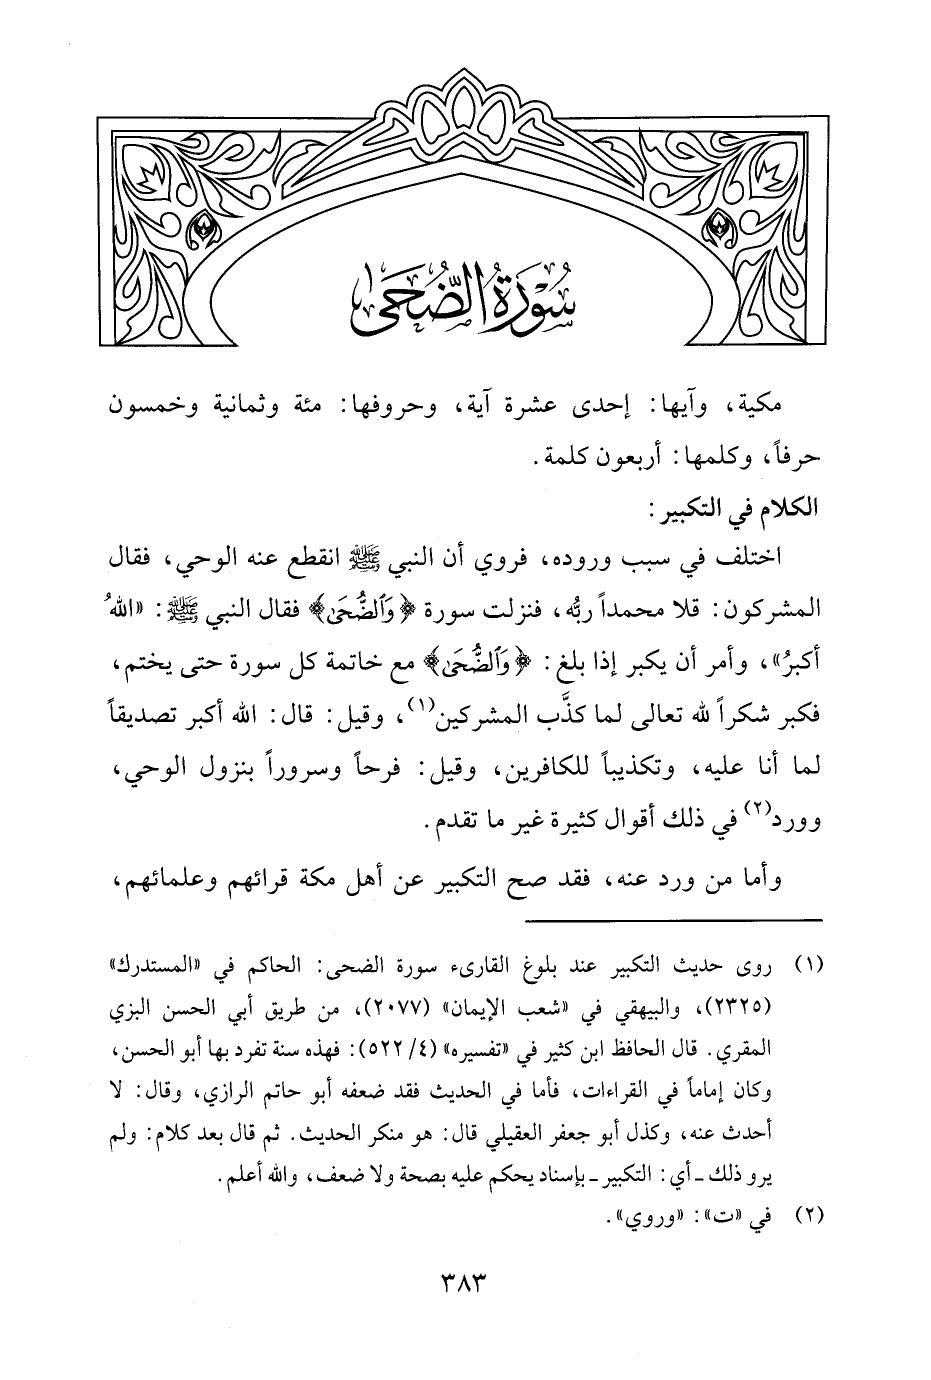 سُوْرَةُ الضُّحَى
مكية، وآيها: إحدى عشرة آية، وحروفها: مئة وثمانية وخمسون
حرفاً، وكلمها: أربعون كلمة.
الكلام في التكبير:
اختلف في سبب وروده، فروي أن النبي ﷺ انقطع عنه الوحي، فقال
المشركون: قلا محمداً ربُّه، فنزلت سورة ﴿وَٱلضُّحَىٰ﴾ فقال النبي ﷺ: «اللهُ
أكبرُ»، وأمر أن يكبر إذا بلغ: ﴿وَٱلضُّحَىٰ﴾ مع خاتمة كل سورة حتى يختم،
فكبر شكراً لله تعالى لما كذَّب المشركين(١)، وقيل: قال: الله أكبر تصديقاً
لما أنا عليه، وتكذيباً للكافرين، وقيل: فرحاً وسروراً بنزول الوحي،
وورد(٢) في ذلك أقوال كثيرة غير ما تقدم.
وأما من ورد عنه، فقد صح التكبير عن أهل مكة قرائهم وعلمائهم،
(١) روى حديث التكبير عند بلوغ القارىء سورة الضحى: الحاكم في «المستدرك»
(٢٣٢٥)، والبيهقي في «شعب الإيمان» (٢٠٧٧)، من طريق أبي الحسن البزي
المقري. قال الحافظ ابن كثير في «تفسيره» (٤/ ٥٢٢): فهذه سنة تفرد بها أبو الحسن،
وكان إماماً في القراءات، فأما في الحديث فقد ضعفه أبو حاتم الرازي، وقال: لا
أحدث عنه، وكذل أبو جعفر العقيلي قال: هو منكر الحديث. ثم قال بعد كلام: ولم
يرو ذلك ـ أي: التكبير ـ بإسناد يحكم عليه بصحة ولا ضعف، والله أعلم.
(٢) في «ت»: «وروي».
٣٨٣